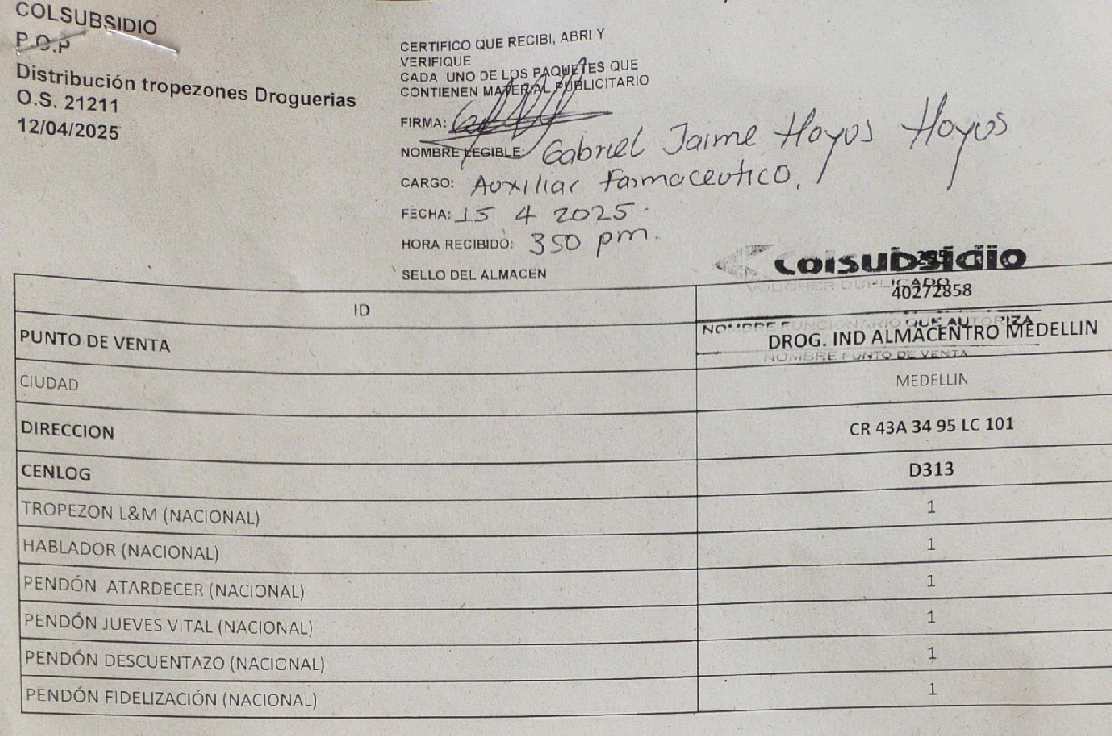 COLSUBSIDIO
P.O.P
Distribución tropezones Droguerias
O.S. 21211
12/04/2025
CERTIFICO QUE RECIBI, ABRI Y
VERIFIQUE
CADA UNO DE LOS PAQUETES QUE
CONTIENEN MATERIAL PUBLICITARIO
FIRMA:
NOMBRE LEGIBLE: Gabriel Jaime Hoyos Hoyos
CARGO: Auxiliar Farmaceutico.
FECHA: 15 4 2025.
HORA RECIBIDO: 350 pm.
SELLO DEL ALMACEN
Colsubsidio
VOUCHER DUPLICADO
ID 40272858
NOMBRE FUNCIONARIO QUE AUTORIZA
PUNTO DE VENTA DROG. IND ALMACENTRO MEDELLIN
NOMBRE PUNTO DE VENTA
CIUDAD MEDELLIN
DIRECCION CR 43A 34 95 LC 101
CENLOG D313
TROPEZON L&M (NACIONAL) 1
HABLADOR (NACIONAL) 1
PENDÓN ATARDECER (NACIONAL) 1
PENDÓN JUEVES VITAL (NACIONAL) 1
PENDÓN DESCUENTAZO (NACIONAL) 1
PENDÓN FIDELIZACIÓN (NACIONAL) 1